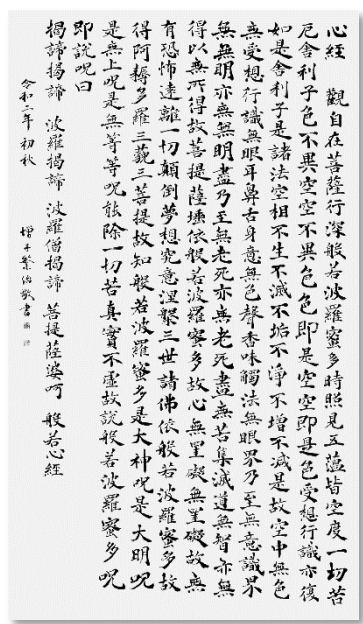 心經 觀自在菩薩行深般若波羅蜜多時照見五蘊皆空度一切苦
厄舍利子色不異空空不異色色即是空空即是色受想行識亦復
如是舍利子是諸法空相不生不滅不垢不淨不增不減是故空中無色
無受想行識無眼耳鼻舌身意無色聲香味觸法無眼界乃至無意識界
無無明亦無無明盡乃至無老死亦無老死盡無苦集滅道無智亦無
得以無所得故菩提薩埵依般若波羅蜜多故心無罣礙無罣礙故無
有恐怖遠離一切顛倒夢想究竟涅槃三世諸佛依般若波羅蜜多故
得阿耨多羅三藐三菩提故知般若波羅蜜多是大神呪是大明呪
是無上呪是無等等呪能除一切苦真實不虛故說般若波羅蜜多呪
即說呪曰
揭諦揭諦 波羅揭諦 波羅僧揭諦 菩提薩婆呵 般若心經
令和二年 初秋 敬書